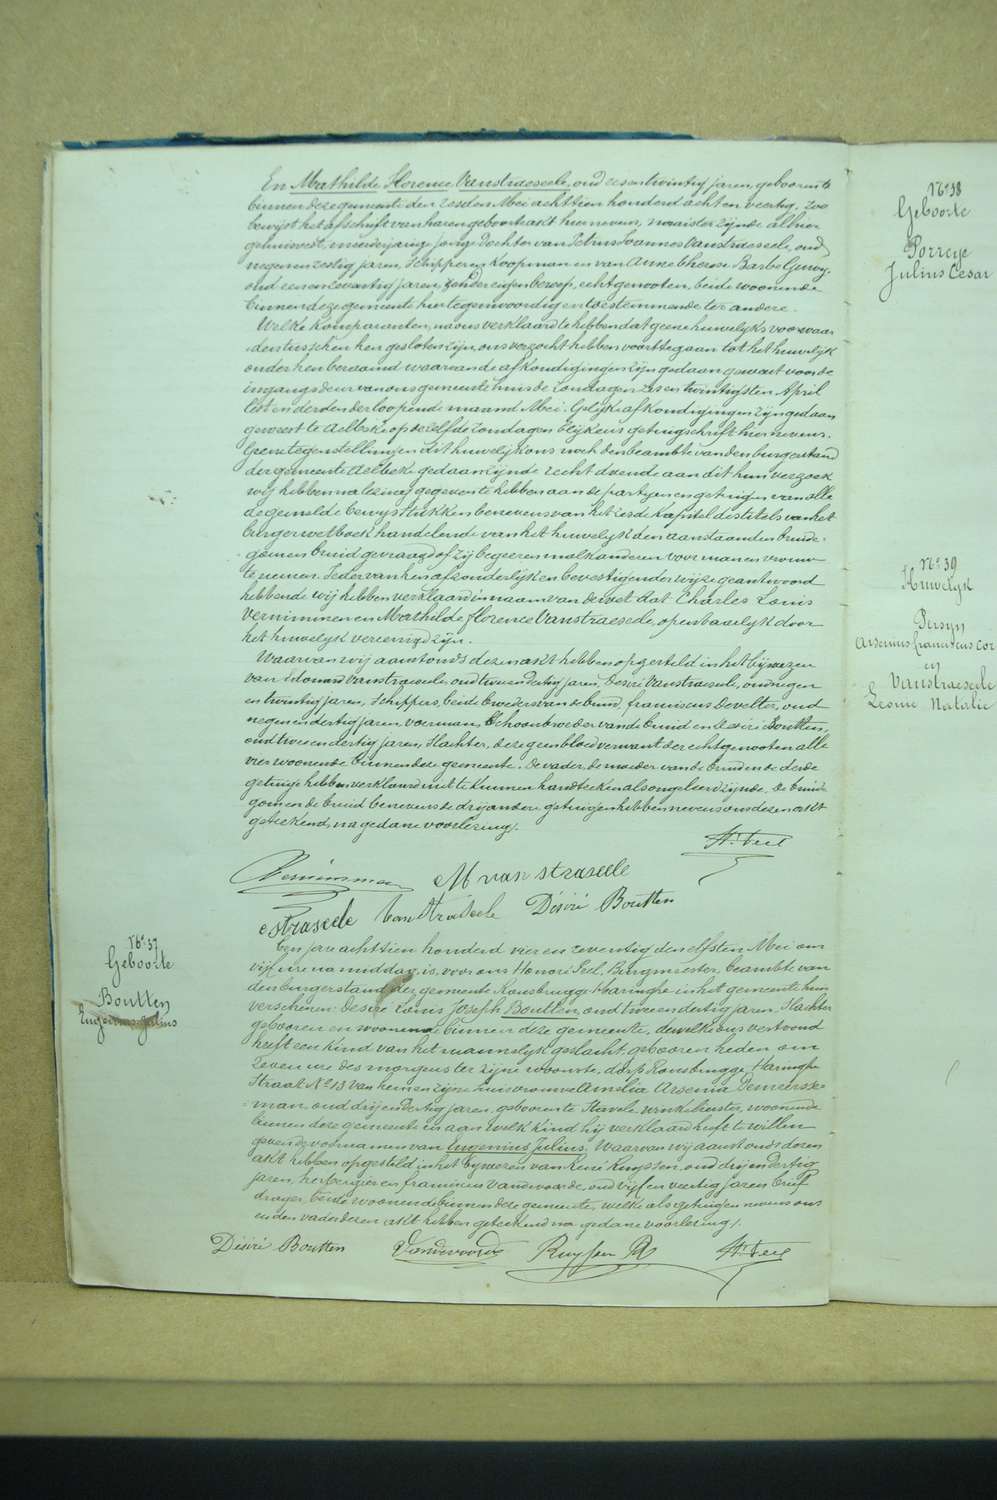 En Mathilde Florence Vanstraeseele, oud zes en twintig jaren, geboren te
binnen deze gemeente den zesden Mei achttien honderd acht en veertig, zoo
bewijst het afschrift van haren geboorteakt hiernevens, naaister zijnde alhier
gehuisvest, meerderjarige jonge dochter van Petrus Joannes Vanstraeseele, oud
negen en zestig jaren, Schipper en Koopman en van Anne Therese Barbe
oud een en zeventig jaren, zonder eigen beroep, echtgenooten, beide woonende
binnen deze gemeente hier tegenwoordig en toestemmende ter andere.
Welke komparanten, na ons verklaard te hebben dat geene huwelijks voorwaar
den tusschen hen gesloten zijn, ons verzocht hebben voort te gaan tot het huwelijk
onder hen beraamd waarvan de afkondigingen zijn gedaan geweest voor de
ingangsdeur van ons gemeentehuis de zondagen zes en twintigsten April
lest en derden der loopende maand Mei. Gelijke afkondigingen zijn gedaan
geweest te Aelbeke op de zelfde zondagen blijkens getuigschrift hiernevens.
Geene tegenstellingen dit huwelijk ons noch den beambte van den burgerstand
der gemeente Aelbeke gedaan zijnde recht doende aan dit hun verzoek
wij hebben na lezing gegeven te hebben aan de partijen en getuigen van alle
de gemelde bewijsstukken benevens van het zesde kapittel des titels van het
burger wetboek handelende van het huwelijk den aanstaanden bruide-
gom en bruid gevraagd of zij begeeren malkanderen voor man en vrouw
te nemen. Ieder van hen afzonderlijk en bevestigender wijze geantwoord
hebbende wij hebben verklaard in naam van de wet dat Charles Louis
Vernimmen en Mathilde florence Vanstraeseele, openbaarlijk door
het huwelijk vereenigd zijn.
Waarvan wij aanstonds dezen akt hebben opgesteld in het bijwezen
van Edouard Vanstraeseele, oud twee en dertig jaren, Desiré Vanstraeseele, oud negen
en twintig jaren, Schippers, beide broeders van de bruid, franciscus Develter, oud
negen en dertig jaren, voerman, Schoonbroeder van de bruid en Desiré Boutten,
oud twee en dertig jaren, Slachter, deze geen bloedverwant der echtgenooten alle
vier woonende binnen deze gemeente. De vader, de moeder van de bruid en de derde
getuige hebben verklaard niet te kunnen handteeken als ongeleerd zijnde, de bruide
gom en de bruid benevens de drij andere getuigen hebben nevens ons dezen akt
geteekend, na gedane voorlezing.
Vernimmen M van straseele
e straseele Van Straeseele Désiré Boutten
No 37
Geboorte
Boutten
Eugenius Julius
Een jaar achttien honderd vier en zeventig den elfsten Mei om
vijf ure na middag is, voor ons Honoré Feel, Burgmeester, beambte van
den burgerstand der gemeente Rousbrugge Haringhe in het gemeente huis
verschenen: Desiré Louis Joseph Boutten, oud twee en dertig jaren, Slachter
geboren en woonende binnen deze gemeente, dewelke ons vertoond
heeft een kind van het mannelyk geslacht, geboren heden om
zeven ure des morgens ter zijne woonste, dorp Rousbrugge Haringhe
Straat No 13 van hem en zijne huisvrouwe Amelia Arsenia Demeeste-
man, oud drij en dertig jaren, geboren te Stavele, winkelierster, woonende
binnen deze gemeente en aan welk kind hij verklaard heeft te willen
geven de voornamen van Eugenius Julius. Waarvan wij aanstonds dezen
akt hebben opgesteld in het bijwezen van René Ruyssen, oud drij en dertig
jaren, herbergier en franciscus Vandevoorde, oud vijf en veertig jaren brief
drager, beide woonende binnen deze gemeente, welke als getuigen nevens ons
en den vader dezen akt hebben geteekend na gedane voorlezing.
Désiré Boutten Vandevoorde Ruyssen
No 38
Geboorte
Porreye
Julius Cesar
No 39
Huwelyk
Persyn
Arsenius franciscus Cor
en
Vanstraeseele
Leonie Natalie